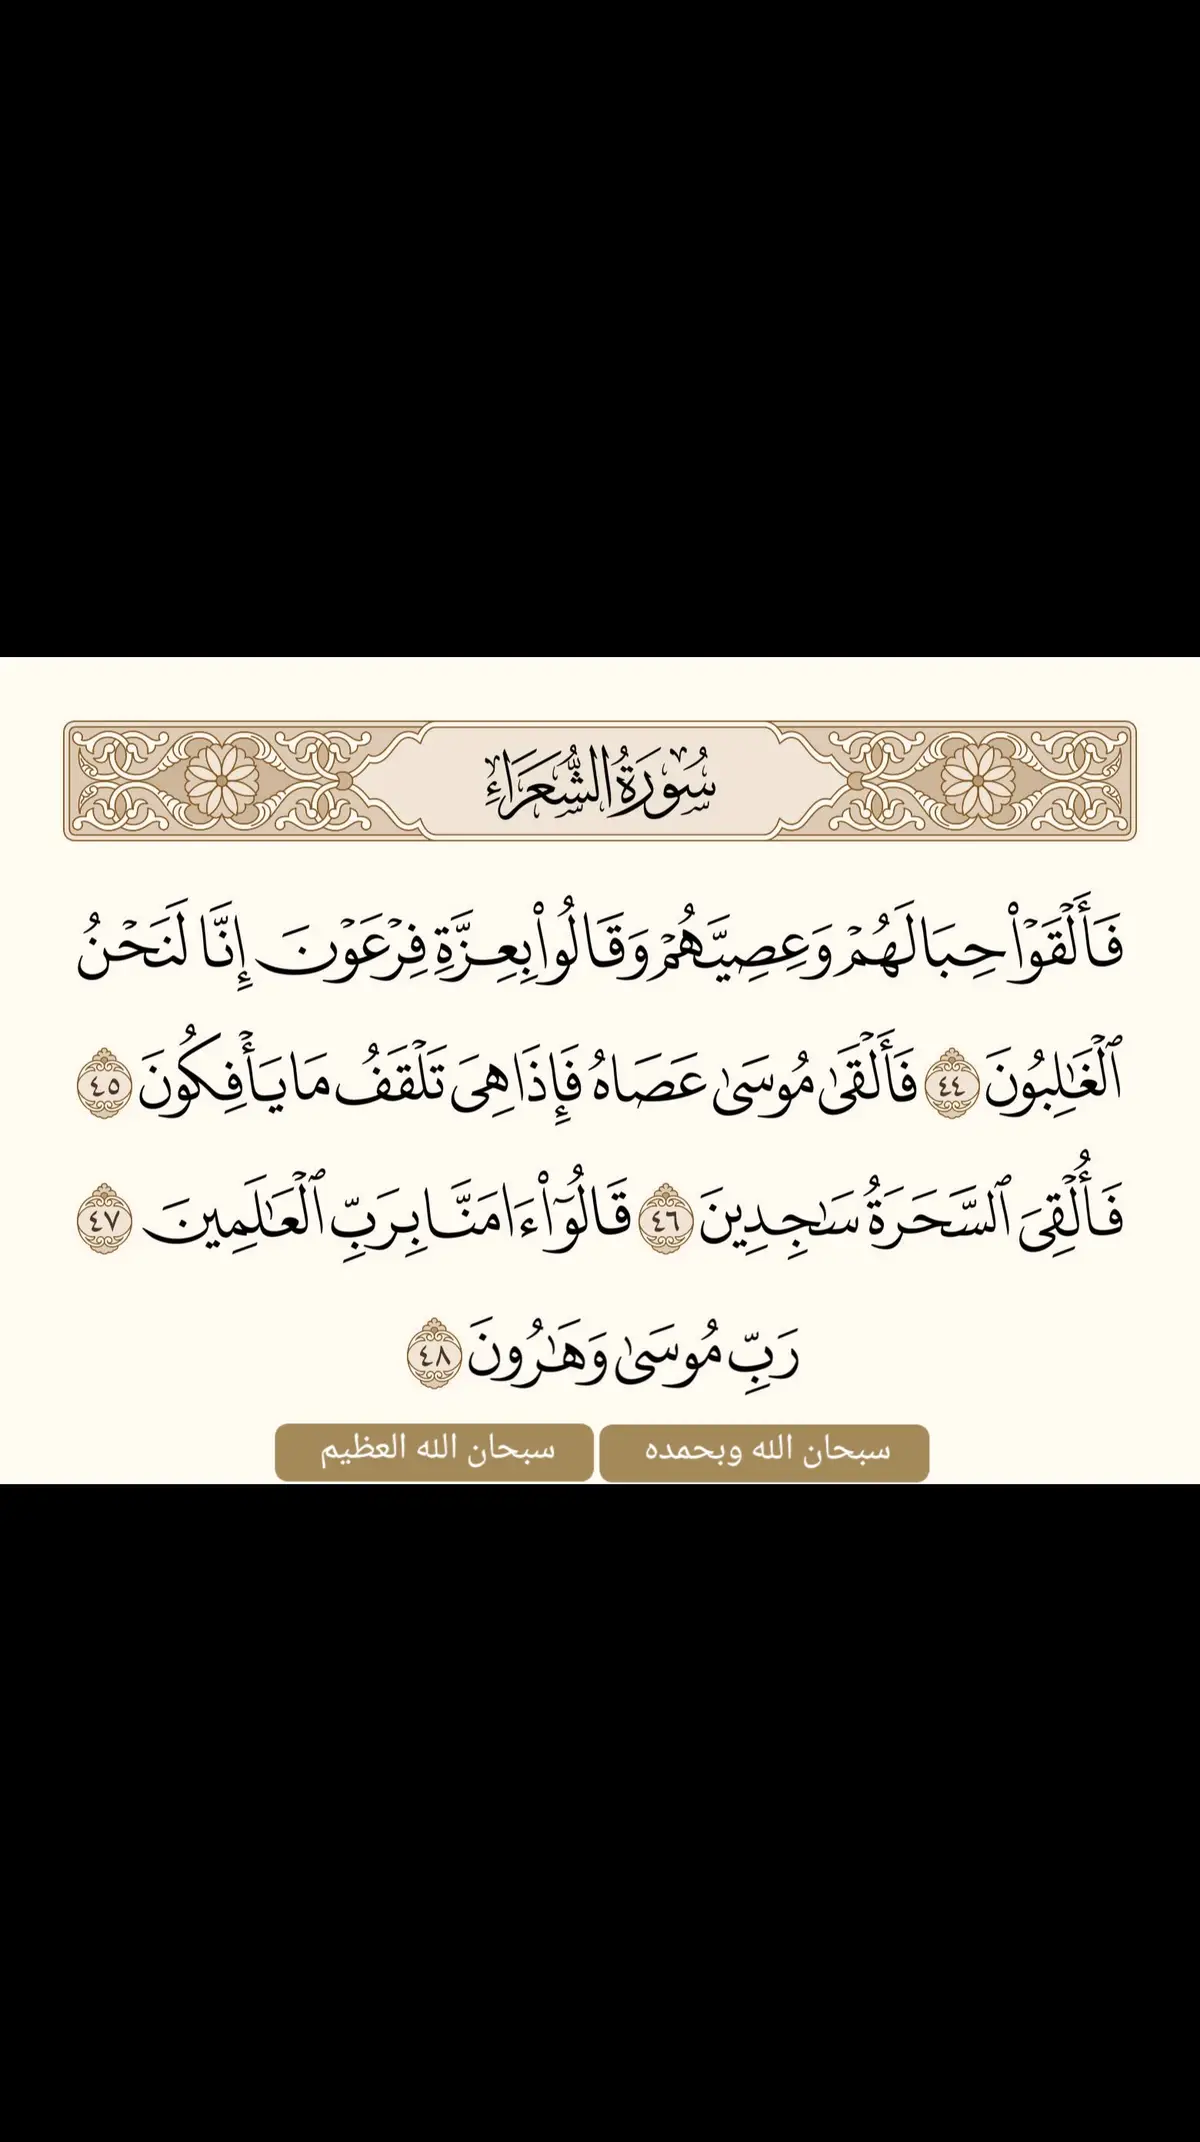 سُورَةُ الشُّعَرَاءِ
فَأَلْقَوْا۟ حِبَالَهُمْ وَعِصِيَّهُمْ وَقَالُوا۟ بِعِزَّةِ فِرْعَوْنَ إِنَّا لَنَحْنُ
ٱلْغَـٰلِبُونَ ٤٤ فَأَلْقَىٰ مُوسَىٰ عَصَاهُ فَإِذَا هِىَ تَلْقَفُ مَا يَأْفِكُونَ ٤٥
فَأُلْقِىَ ٱلسَّحَرَةُ سَـٰجِدِينَ ٤٦ قَالُوٓا۟ ءَامَنَّا بِرَبِّ ٱلْعَـٰلَمِينَ ٤٧
رَبِّ مُوسَىٰ وَهَـٰرُونَ ٤٨
سبحان الله وبحمده سبحان الله العظيم